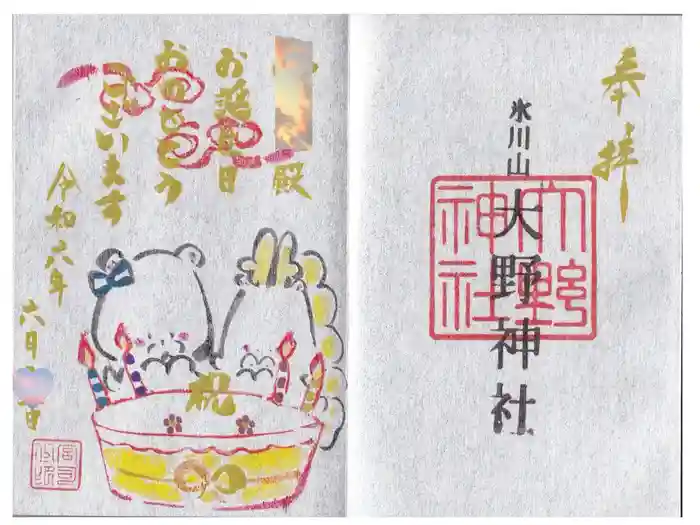 奉拝
氷川山
大野神社
大野
神社
殿
お誕生日
おめでとう
ございます
令和六年
六月
日
祝
宮司